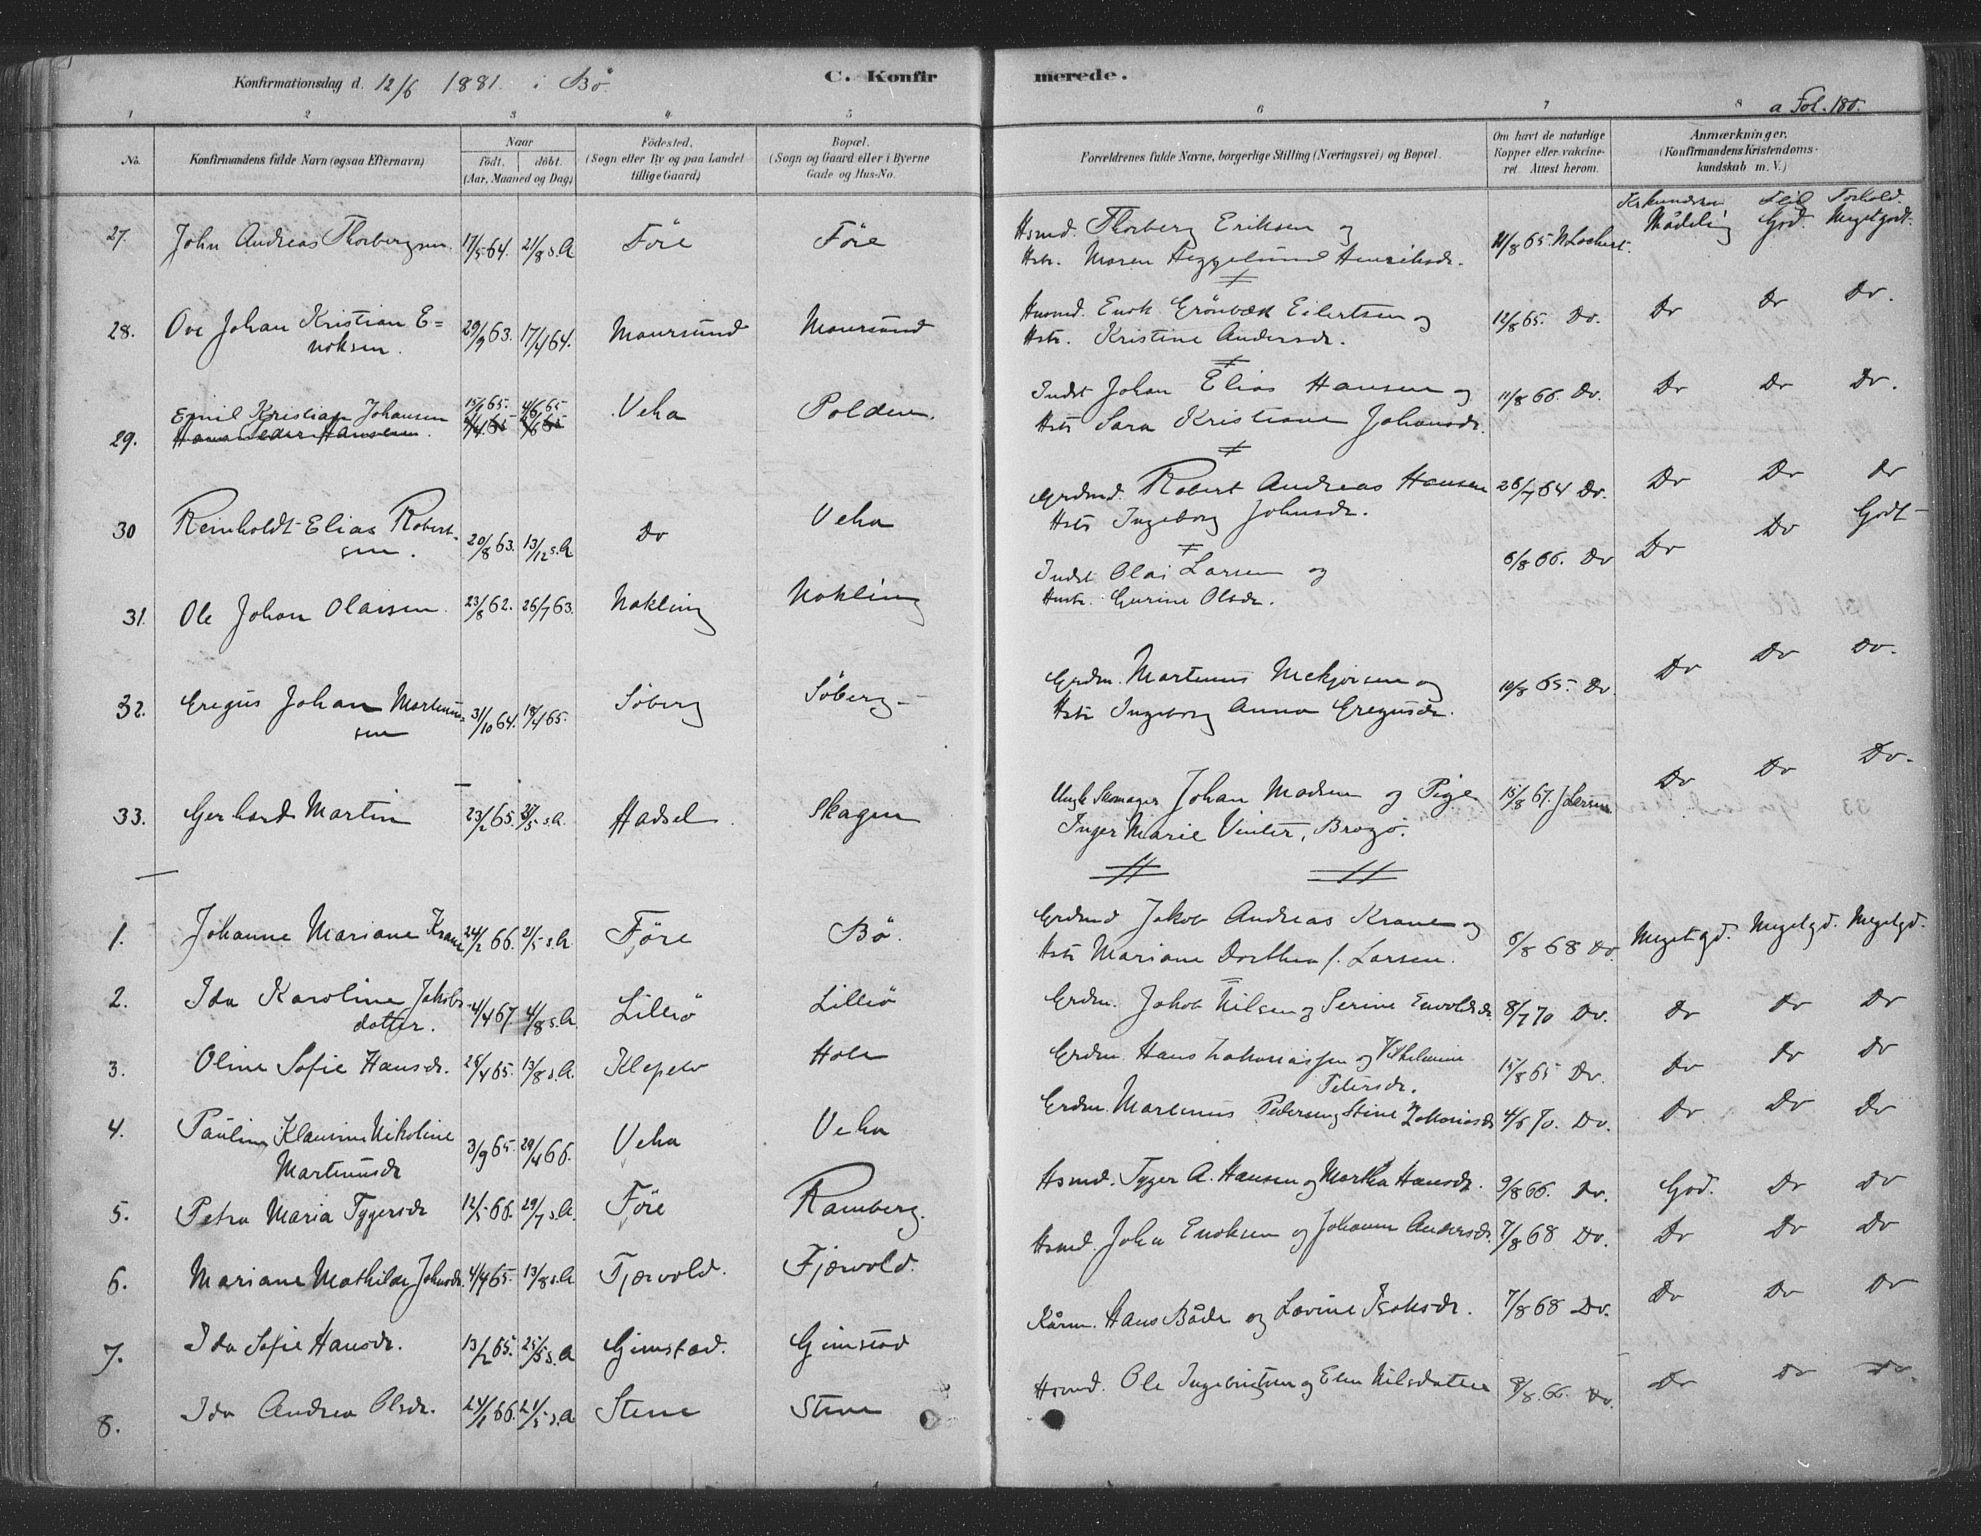 Konfirmationsdag d. 12/6 1881. i Bö.
C. Konfirmerede.
a Fol. 180.
1 2 3 4 5 6 7 8
No.
Konfirmandens fulde Navn (ogsaa Efternavn)
Naar
født. døbt.
(Aar, Maaned og Dag)
Fødested.
(Sogn eller By og paa Landet
tillige Gaard)
Bopæl.
(Sogn og Gaard eller i Byerne
Gade og Hus-No.
Forældrenes fulde Navne, borgerlige Stilling (Næringsvei) og Bopæl.
Om havt de naturlige
Kopper eller vakcine-
ret Attest herom.
Anmærkninger.
(Konfirmandens Kristendoms-
kundskab m. V.)
Flid Forhold.
27. John Andreas Thorbergsen. 17/5 64. 21/8 s.A Före Före Hsmd. Thorberg Eriksen og 11/8 65. Mådelig God. Meget godt.
Hstr. Maren Heggelund Henriksdr.
28. Ove Johan Kristian E= 29/9 63. 17/4 64. Maursund Maursund Husmd. Enok Grönbæk Eilertsen og 12/8 65. Do. Do Do Do.
noksen. Hstr. Kristine Andersdr.
29. Emil Kristian Johansen 15/1 65. 4/6 65 Veha Polden. Indst Johan Elias Hansen og 11/8 66. Do. Do Do Do.
Hstr Sara Kristiane Johansdr.
30 Reinholdt Elias Robert- 20/8 63. 13/12 s.A Do Veha Grdmd. Robert Andreas Hansen 26/7 64 Do. Do Do Do
sen. Hstr Ingeborg Johnsdr.
31. Ole Johan Olaisen. 23/8 62. 26/7 63. Nokling Nokling Indst Olai Larsen og 6/8 66. Do Do Do Godt
Hustr. Gurine Olsdr.
32. Eregus Johan Martinus- 31/10 64. 18/4 65. Söberg Söberg Grdm. Martinus Mekjorsen og 10/8 65. Do. Do Do Do.
sen Hstr Ingeborg Anna Eregusdr.
33. Gerhard Martin 23/2 65. s.A. Hadsel Skagen Ungk. Skomager Johan Madsen og Pige 15/8 67. J Larsen Do Do Do.
Inger Marie Vinter, Brogö.
1. Johanne Mariane Krane 24/2 66. 21/5 s.A. Före Bö. Grdmd Jakob Andreas Krane og 6/8 68 Do. Meget gd. Meget gd. Meget gd.
Hstr Mariane Dorthea f. Larsen.
2. Ida Karoline Jakobs- 4/4 67. 4/8 s.A. Lilleö Lilleö Grdm. Jakob Nilsen og Serine Envoldsdr 8/7 70 Do. Do Do Do
dotter.
3. Oline Sofie Hansdr. 25/4 65. 13/8 s.A. Klepele Hole Grdm. Hans Zakariassen og Vilhelmine 15/8 65 Do. Do Do Do
Petersdr.
4. Pauline Klausine Nikoline 3/9 65. 29/4 66. Veha Veha Grdm. Martinus Pedersen og Stine Zakariasdr 4/6 70. Do. Do Do Do
Martinusdr
5. Petra Maria Tygersdr 12/5 66. 29/7 s.A. Före Ramberg. Hsmd. Tyger A. Hansen og Martha Hansdr. 9/8 66. Do. God. Do Do
6. Mariane Mathilde Johnsdr. 4/4 65. 13/8 s.A Fjærvold. Fjærvold. Hsmd. John Enoksen og Johanna Andersdr. 7/8 68 Do. Do Do Do
7. Ida Sofie Hansdr. 13/2 65. 25/5 s.A Gimstad. Gimstad Kårm. Hans Både og Lovine Isaksdr. 7/8 68 Do. Do Do Do
8. Ida Andrea Olsdr. 24/1 66. 21/5 s.A Stene Stene Hsmd. Ole Ingebrigtsen og Elen Nilsdatter 8/8 66. Do. Do Do Do.